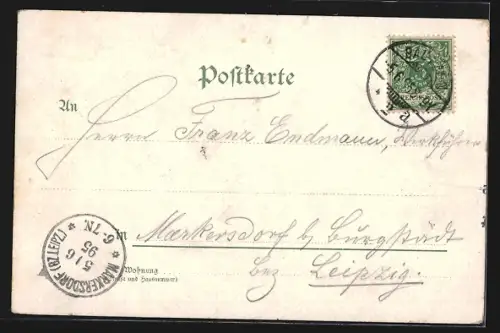 Postkarte
An
Herrn Franz Endmann, Werkführer
in Markersdorf b/ Burgstädt
Bez Leipzig.
Wohnung
(Straße und Hausnummer)
MARKERSDORF (BZ LEIPZ.)
5/6
95
6-7N.